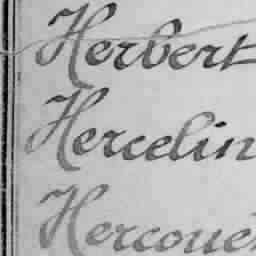 Herbert
Hercelin
Hercoue